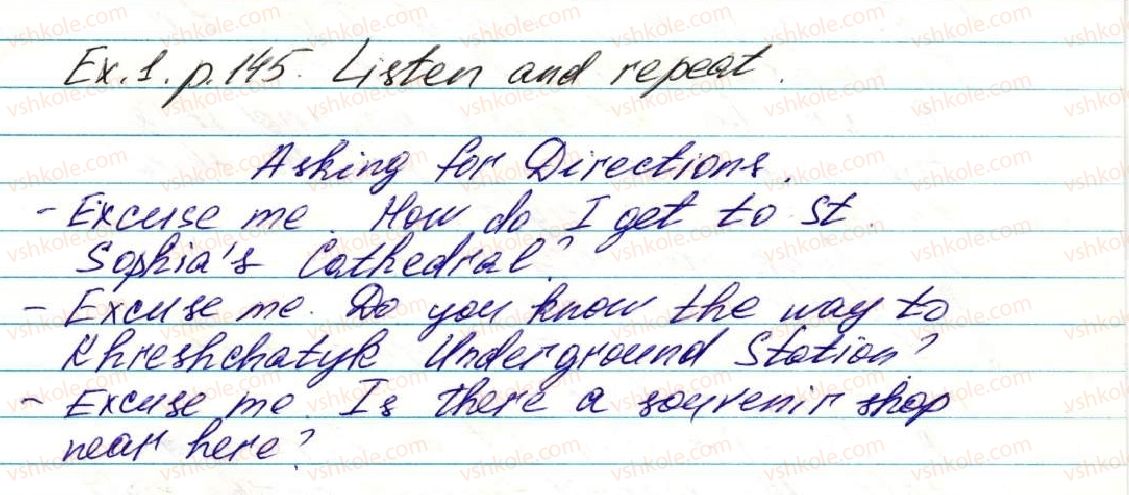 Ex.1. p.145. Listen and repeat.
Asking for Directions.
- Excuse me. How do I get to St.
Sophia's Cathedral?
- Excuse me. Do you know the way to
Khreshchatyk Underground Station?
- Excuse me. Is there a souvenir shop
near here?